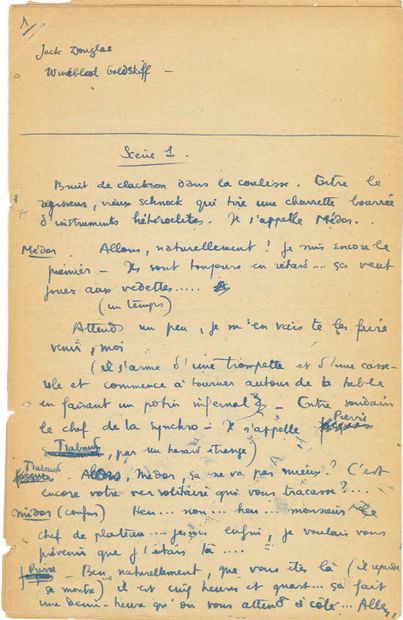 1
Jack Douglas
Windblood Goldskiff –
Scène 1.
Bruit de clackson dans la coulisse. Entre le
régisseur, vieux schnock qui tire une charrette bourrée
d'instruments hétéroclites. Il s'appelle Médor.
Médor Allons, naturellement ! je suis encore le
premier – Ils sont toujours en retard... ça veut
jouer aux vedettes.....
(un temps)
Attends un peu, je m'en vais te les faire
venir, moi
(il s'arme d'une trompette et d'une casse-
role et commence à tourner autour de la table
en faisant un potin infernal – Entre soudain
le chef de la Synchro – Il s'appelle Pierre
Trabaud, par un hasard étrange)
Trabaud. Alors, Médor, ça ne va pas mieux ? C'est
encore votre ver solitaire qui vous tracasse ?...
Médor (confus) Heu... non... heu... monsieur le
chef de plateau... je suis enfin, je voulais vous
prévenir que j'étais là....
Pierre – Ben naturellement, que vous êtes là (il regarde
sa montre) il est cinq heures et quart... ça fait
une demi-heure qu'on vous attend à côté... Allez,